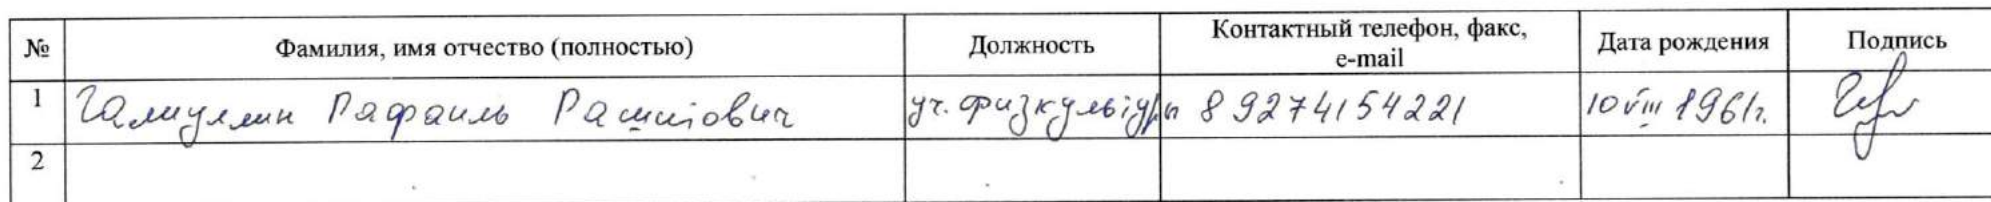 № Фамилия, имя отчество (полностью) Должность Контактный телефон, факс, Дата рождения Подпись
e-mail
1 Галиуллин Рафаиль Рашитович уч. физкультуры 89274154221 10 VIII 1961г.
2